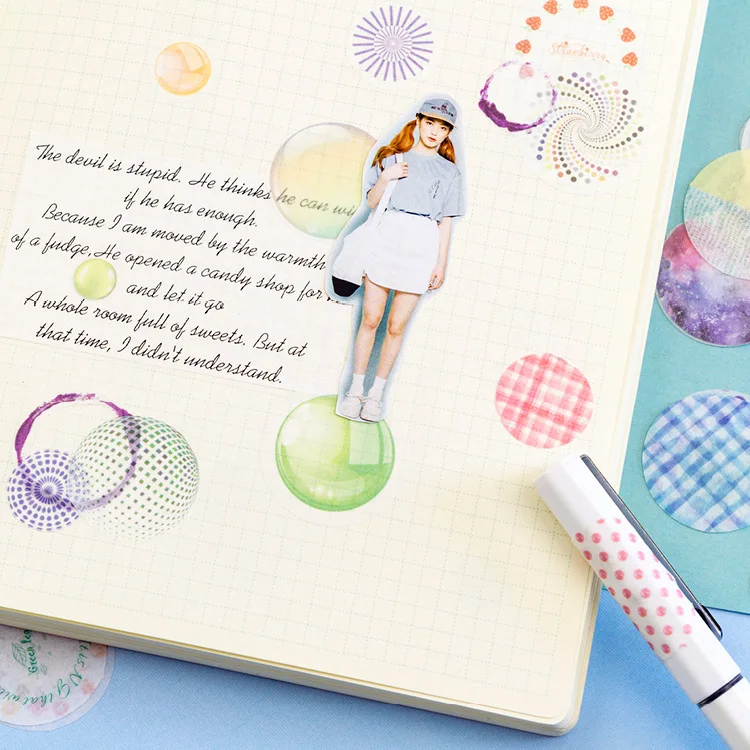 Strawberry
The devil is stupid. He thinks he can wi
if he has enough.
Because I am moved by the warmth
of a fudge, He opened a candy shop for
and let it go
A whole room full of sweets. But at
that time, I didn't understand.
Green tea